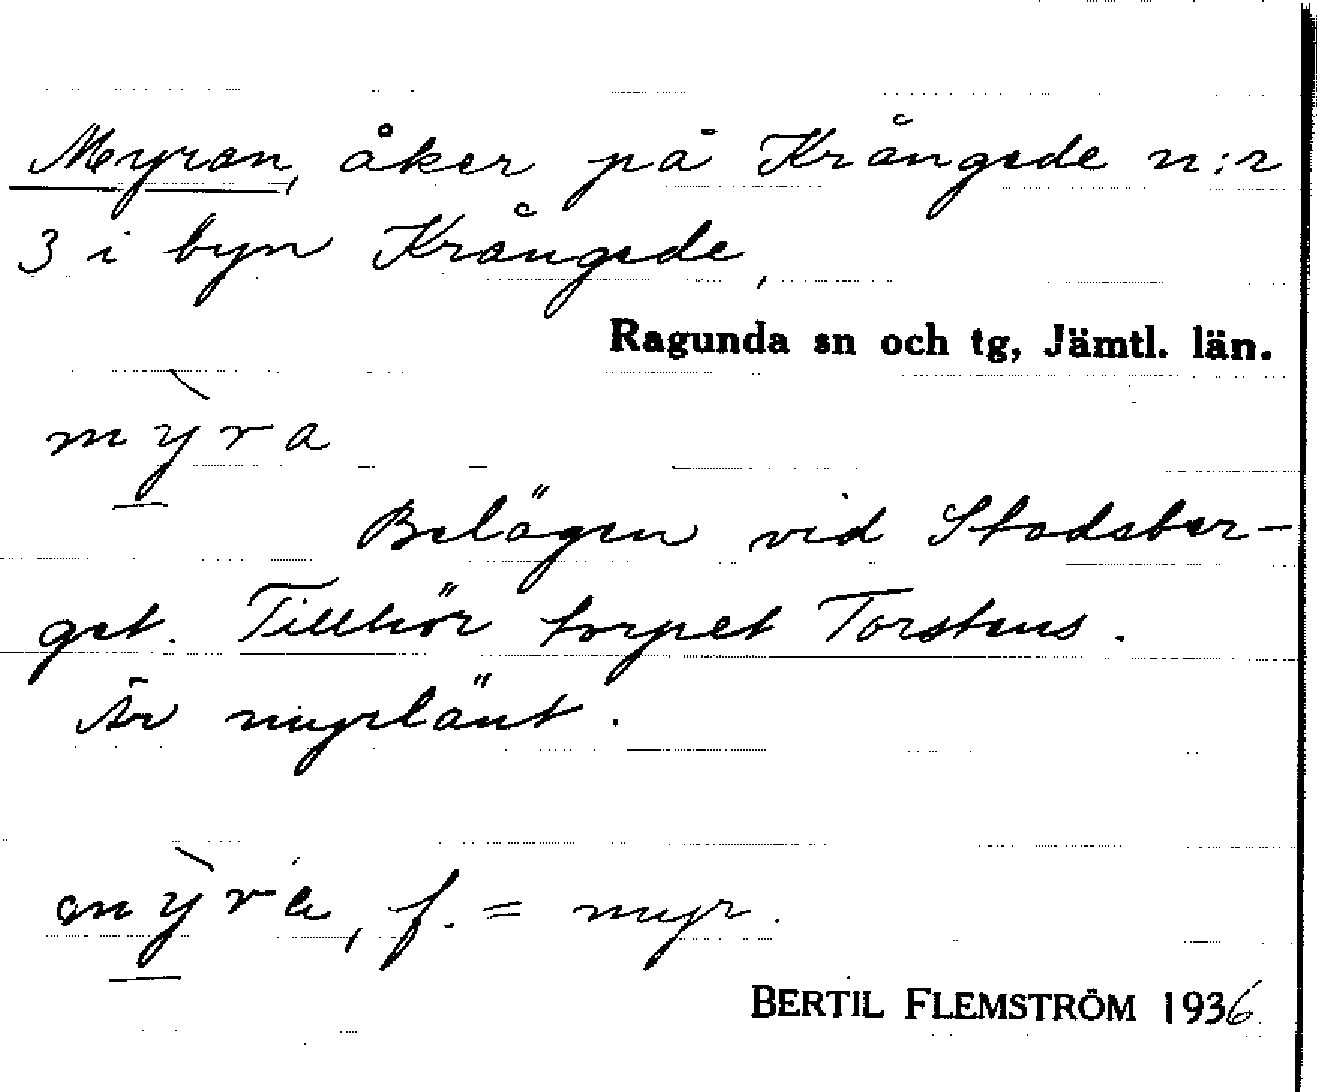 Myran, åker på Krångede n:r
3 i byn Krångede,
Ragunda sn och tg, Jämtl. län.
mỳra
Belägen vid Stadsber-
get. Tillhör torpet Torstens.
Är myrlänt.
mỳra, f. = myr.
BERTIL FLEMSTRÖM 1936